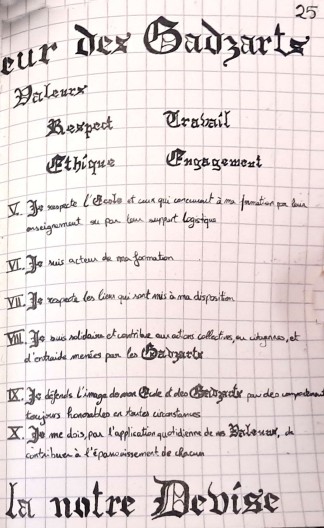 25
eur des Gadzarts
Valeurs
Respect Travail
Ethique Engagement
V. Je respecte l'Ecole et ceux qui concourent à ma formation par leur
enseignement ou par leur support logistique
VI. Je suis acteur de ma formation
VII. Je respecte les lieux qui sont mis à ma disposition
VIII. Je suis solidaire et contribue aux actions collectives, ou citoyennes, et
d'entraide menées par les Gadzarts
IX. Je défends l'image de mon Ecole et des Gadzarts par des comportements
toujours honorables en toutes circonstances
X. Je me dois, par l'application quotidienne de nos Valeurs, de
contribuer à l'épanouissement de chacun
la notre Devise